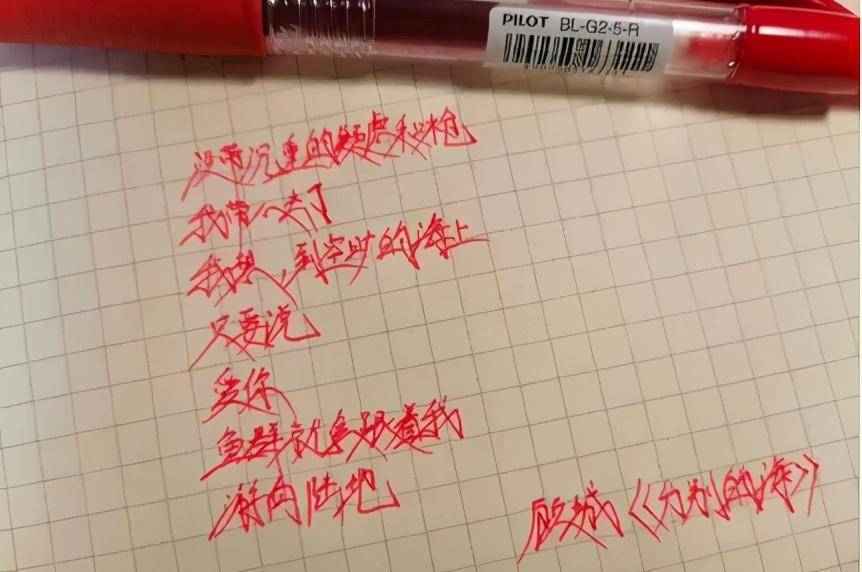 PILOT BL-G2-5-R
没带沉重的疑虑和枪
我带心去了
我想，到空旷的海上
只要说
爱你
鱼群就会跟着我
游向陆地
顾城《分别的海》